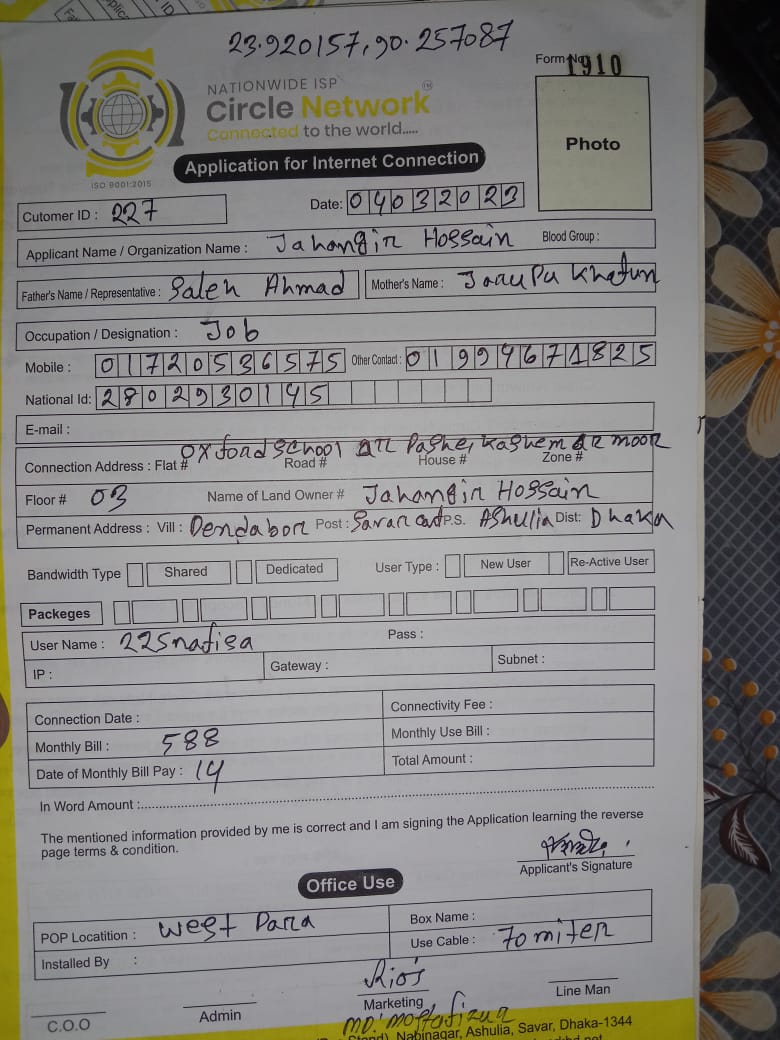 23.920157, 90.257087
Form No 1910
NATIONWIDE ISP
Circle Network
Connected to the world.....
ISO 9001:2015
Photo
Application for Internet Connection
Cutomer ID : 227
Date: 04032023
Applicant Name / Organization Name : Jahangir Hossain Blood Group :
Father's Name / Representative : Saleh Ahmad Mother's Name : Khatun
Occupation / Designation : Job
Mobile : 01720536575 Other Contact : 01994671825
National Id: 2802930145
E-mail :
Connection Address : Flat # Oxford School Er Pashe, Kashem Er moor Road # House # Zone #
Floor # 03 Name of Land Owner # Jahangir Hossain
Permanent Address : Vill : Dendabor Post : Savar Cant P.S. Ashulia Dist: Dhaka
Bandwidth Type Shared Dedicated User Type : New User Re-Active User
Packeges
User Name : 225nafisa Pass :
IP : Gateway : Subnet :
Connection Date : Connectivity Fee :
Monthly Bill : 588 Monthly Use Bill :
Date of Monthly Bill Pay : 14 Total Amount :
In Word Amount :
The mentioned information provided by me is correct and I am signing the Application learning the reverse
page terms & condition.
Applicant's Signature
Office Use
POP Locatition : West Para Box Name :
Installed By : Use Cable : 70 miter
C.O.O Admin Marketing Line Man
MD. Mostafizur
Stand), Nabinagar, Ashulia, Savar, Dhaka-1344